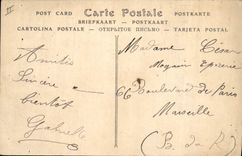 II
POST CARD Carte Postale POSTKARTE
BRIEFKAART — POSTKAART
CARTOLINA POSTALE — ОТКРЫТОЕ ПИСЬМО — TARJETA POSTAL
Amitiés
Sincère
bientôt
Madame César
Magasin Epicerie
66 Boulevard de Paris
Marseille
(B. du R.)